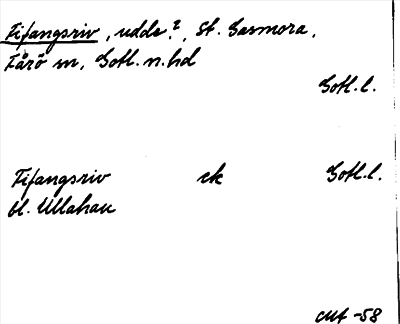 Fifangsriv, udde?, St. Gasmora,
Fårö sn, Gotl. n. hd
Gotl. l.
Fifangsriv ek Gotl. l.
bl. Ullahau
-58